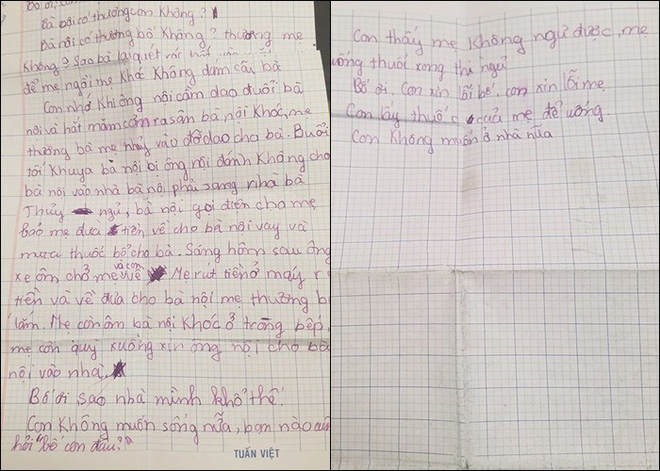 Bố ơi,
Bà nội có thương con không?
Bà nội có thương bố không? thương mẹ
không? Sao bà lại quét
để mẹ ngồi mẹ khóc không dám cãi bà
Con nhớ khi ông nội cầm dao đuổi bà
nội và hất mâm cơm ra sân bà nội khóc, mẹ
thương bà mẹ nhảy vào đỡ dao cho bà. Buổi
tối khuya bà nội bị ông nội đánh không cho
bà nội vào nhà bà nội phải sang nhà bà
Thủy ngủ, bà nội gọi điện cho mẹ
bảo mẹ đưa tiền về cho bà nội vay và
mua thuốc bổ cho bà. Sáng hôm sau ông
xe ôm chở mẹ và con về Mẹ rút tiền ở máy r
tiền và về đưa cho bà nội mẹ thương b
lắm. Mẹ còn ôm bà nội khóc ở trong bếp,
mẹ còn quỳ xuống xin ông nội cho bà
nội vào nhà.
Bố ơi sao nhà mình khổ thế.
Con không muốn sống nữa, bạn nào cũn
hỏi "bố con đâu?"
TUẤN VIỆT
Con thấy mẹ không ngủ được, mẹ
uống thuốc xong thì ngủ
Bố ơi. Con xin lỗi bố, con xin lỗi mẹ
Con lấy thuốc của mẹ để uống
Con không muốn ở nhà nữa